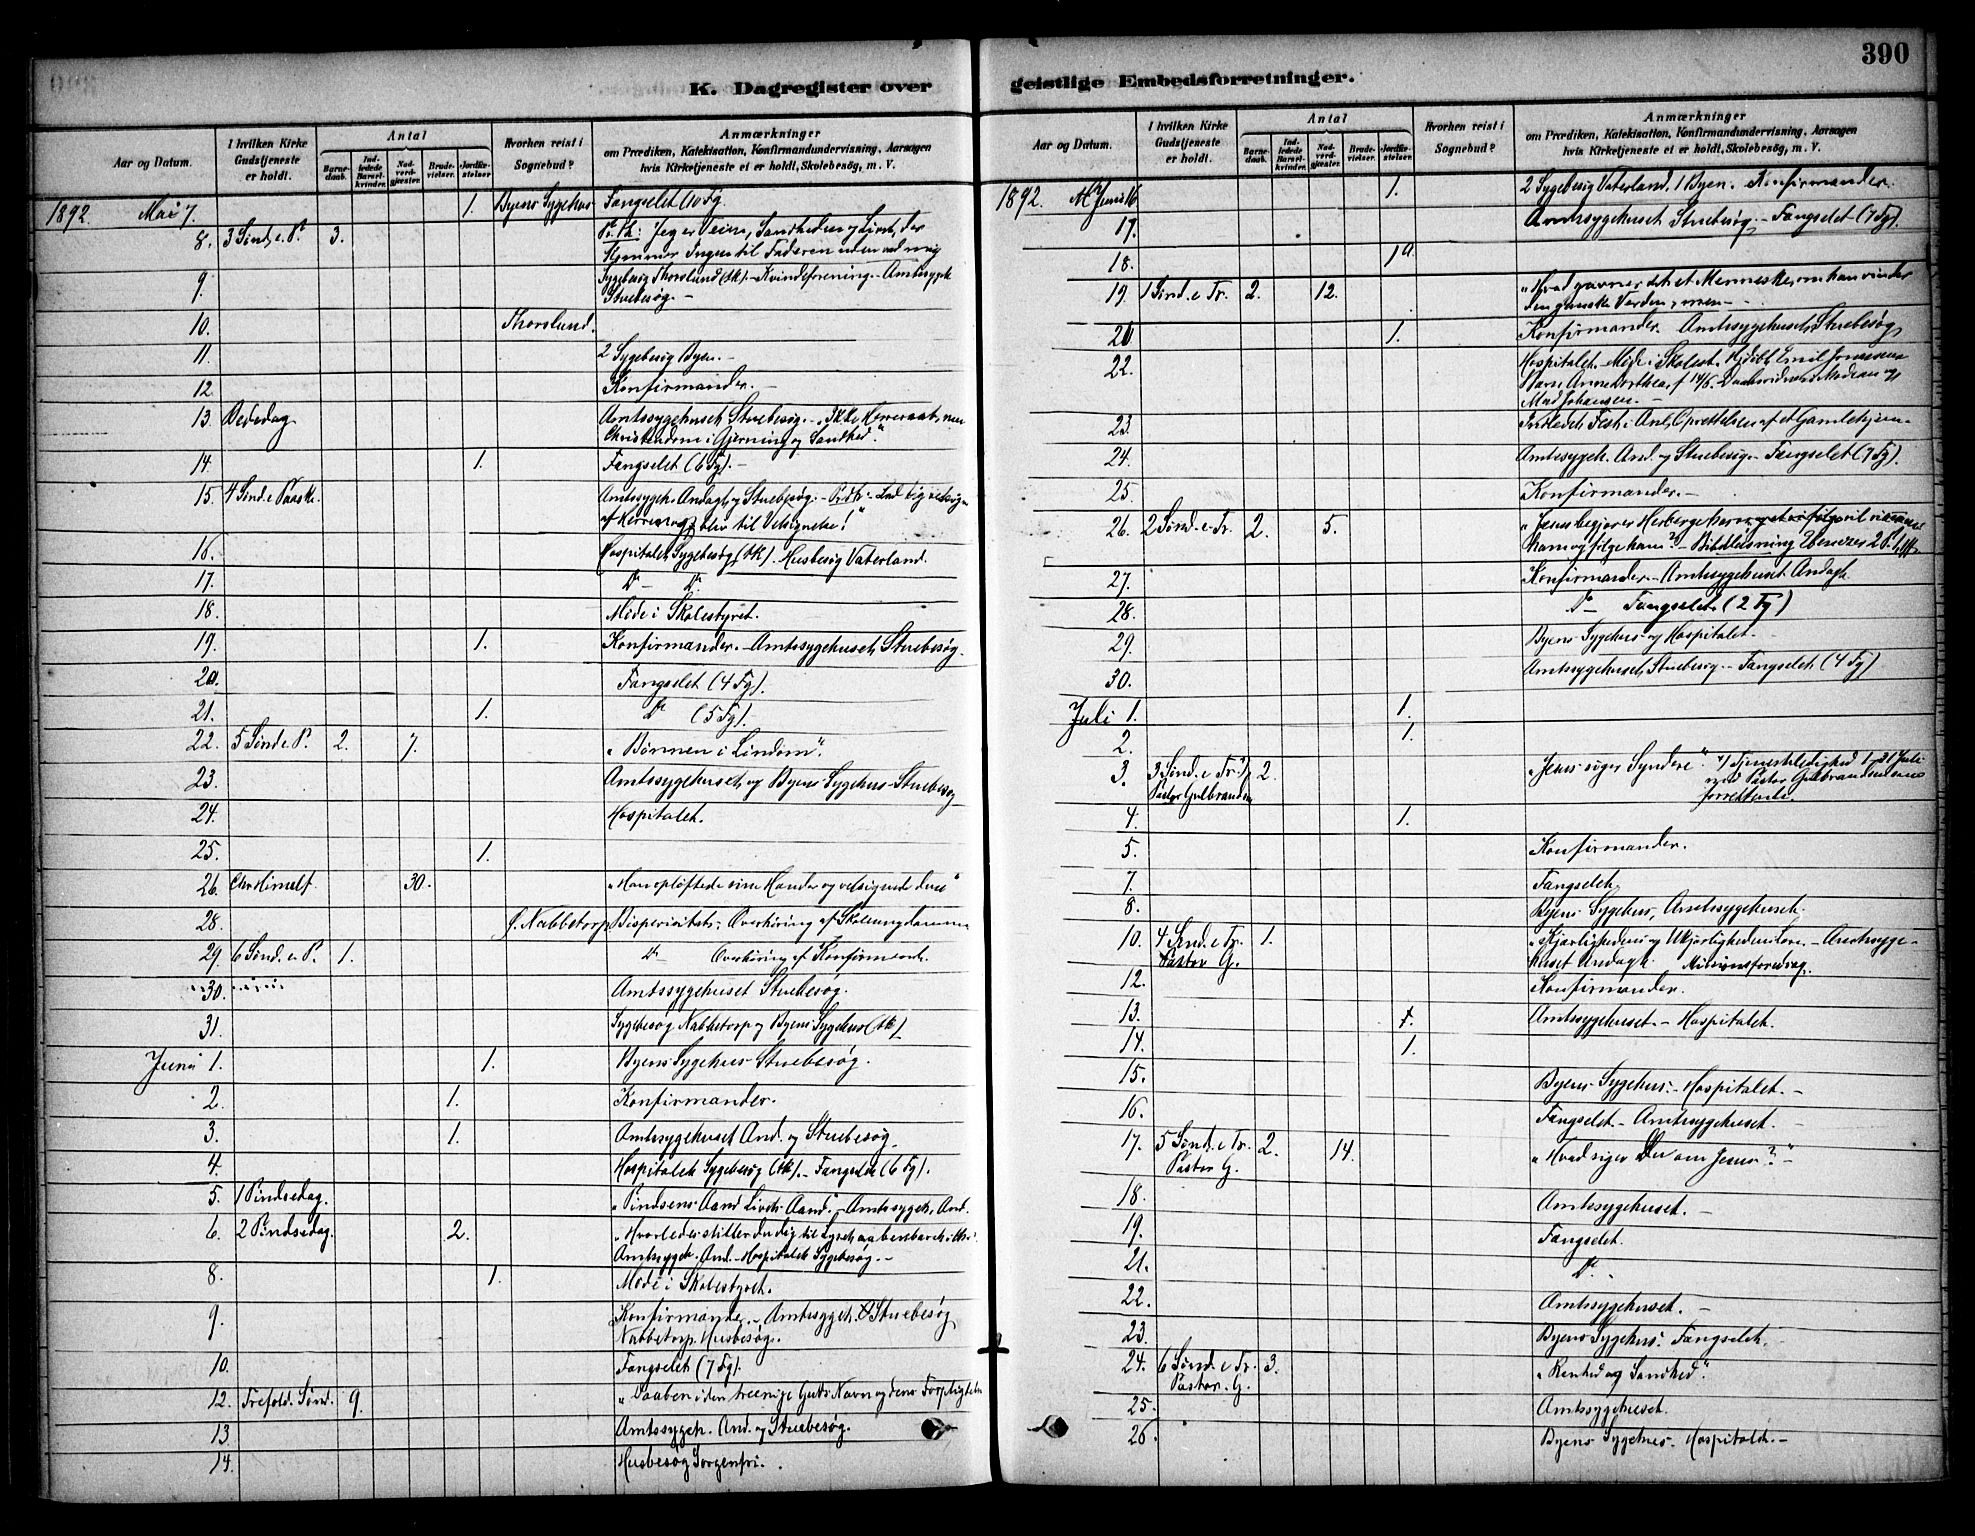 390
K. Dagregister over
geistlige Embedsforretninger.
Aar og Datum.
I hvilken Kirke Gudstjeneste er holdt.
Antal
Barnedaab.
Indledede Barselkvinder.
Nadverdgjester.
Brudevielser.
Jordfæstelser.
Hvorhen reist i Sognebud?
Anmærkninger
om Prædiken, Katekisation, Konfirmandundervisning, Aarsagen
hvis Kirketjeneste ei er holdt, Skolebesøg, m. V.
1892. Mai 7. 1. Byens Sygehus Fangselet (10 Fg.
8. 3 Sønd. e. P. 3. Jeg er Veien, Sandheden og Livet, der
kommer Ingen til Faderen uden ved mig
9. Sygebesøg Thorslund (Ak). - Kvindeforening. - Amtssygeh.
Stuebesøg. -
10. Thorslund.
11. 2 Sygebesøg Byen. -
12 Konfirmander. -
13 Bededag Amtssygehuset, Stuebesøg. - "Ikke Herreraab, men
Christendom i Gjerning og Sandhed."
14. 1. Fangselet (6 Fg). -
15. 4 Sønd. e. Paaske. Amtssygeh. Andagt og Stuebesøg. -
af Herren og bliv til Velsignelse!"
16. Hospitalet Sygebesøg (Ak). Husbesøg Vaterland.
17. Do - Do
18. Møde i Skolestyret.
19. 1. Konfirmander. - Amtssygehuset, Stuebesøg.
20. Fangselet (4 Fg).
21. 1. Do (5 Fg).
22. 5 Sønd e P. 2. 7. "Bønnen i Løndom".
23. Amtssygehuset og Byens Sygehus - Stuebesøg
24. Hospitalet.
25. 1.
26. Chr. Himelf. 30. "Han opløftede sine Hænder og velsignede dem"
28. Nabbetorp Bispevisitats. Overhøring af Skoleungdommen
29. 6 Sønd. e. P. 1. Do - Overhøring af Konfirmerede.
30. Amtssygehuset Stuebesøg.
31. Sygebesøg Nabbetorp og Byens Sygehus (Ak)
Juni 1. 1. Byens Sygehus - Stuebesøg.
2. 1. Konfirmander.
3. 1. Amtssygehuset And. og Stuebesøg
4. Hospitalet Sygebesøg (Ak). - Fangselet (6 Fg).
5. 1 Pindsedag. "Pindsens Aand Livets Aand." - Amtssygeh. And.
6. 2 Pindsedag. 2. "Hvorledes stiller du dig til Lyset aabenbaret i Chr.
Amtssygeh. And. - Hospitalet Sygebesøg. -
8. 1. Møde i Skolestyret.
9. Konfirmander. - Amtssygeh. Stuebesøg
Nabbetorp Husbesøg.
10. Fangselet (7 Fg).
12. Trefold. Sønd. 9. "Daaben i den treenige Guds Navn og dens Forpligtelse
13. Amtssygeh. And. og Stuebesøg.
14. Husbesøg Sorgenfri.
Aar og Datum.
I hvilken Kirke Gudstjeneste er holdt.
Antal
Barnedaab.
Indledede Barselkvinder.
Nadverdgjester.
Brudevielser.
Jordfæstelser.
Hvorhen reist i Sognebud?
Anmærkninger
om Prædiken, Katekisation, Konfirmandundervisning, Aarsagen
hvis Kirketjeneste ei er holdt, Skolebesøg, m. V.
1892. Juni 16 1. 2 Sygebesøg Vaterland, 1 Byen. - Konfirmander.
17. Amtssygehuset Stuebesøg - Fangselet (7 Fg).
18.
19. 1 Sønd. e Tr. 2. 12. "Hvad gavner det et Menneske, om han vinder
den ganske Verden, men - -
20 1. Konfirmander. Amtssygehuset, Stuebesøg
22. Hospitalet. Møde i Skolest.
Johansen. -
23. Fest i Anl. Oprettelsen af et Gamlehjem. -
24. Amtssygeh. And. og Stuebesøg - Fangselet (7 Fg).
25. Konfirmander. -
26. 2 Sønd. e. Tr. 2. 5. "Jesus begjærer Herberge
ham og følge ham? - Bibellæsning Ebenezer
27. Konfirmander. - Amtssygehuset Andagt.
28. Do - Fangselet (2 Fg)
29. Byens Sygehus og Hospitalet. -
30. Amtssygehuset, Stuebesøg - Fangselet (4 Fg)
Juli 1. 1.
2. 1.
3. 3 Sønd. e Tr. 2. "Jesus siger Syndere" Tjenestledighed 1-31 Juli
Pastor Gulbrandsen med Pastor Gulbrandsen som
forrettende.
4. 1.
5. Konfirmander.
7. Fangselet.
8. Byens Sygehus, Amtssygehuset.
10. 4 Sønd. e Tr. 1. "Kjærlighedens og Ukjærlighedens Lov. - Amtssyge-
Pastor G. huset Andagt. Missionsforedrag.
12. Konfirmander.
13. Amtssygehuset. - Hospitalet.
14. 1.
15. Byens Sygehus. - Hospitalet. -
16. Fangselet - Amtssygehuset. -
17. 5 Sønd. e Tr. 2. 14. "Hvad siger Du om Jesus?" -
Pastor G.
18. Amtssygehuset. -
19. Fangselet.
21. Do. -
22. Amtssygehuset. -
23. Byens Sygehus. Fangselet.
24. 6 Sønd. e Tr. 3. "Renhed og Sandhed".
Pastor G.
25. Amtssygehuset.
26. Byens Sygehus. Hospitalet. -